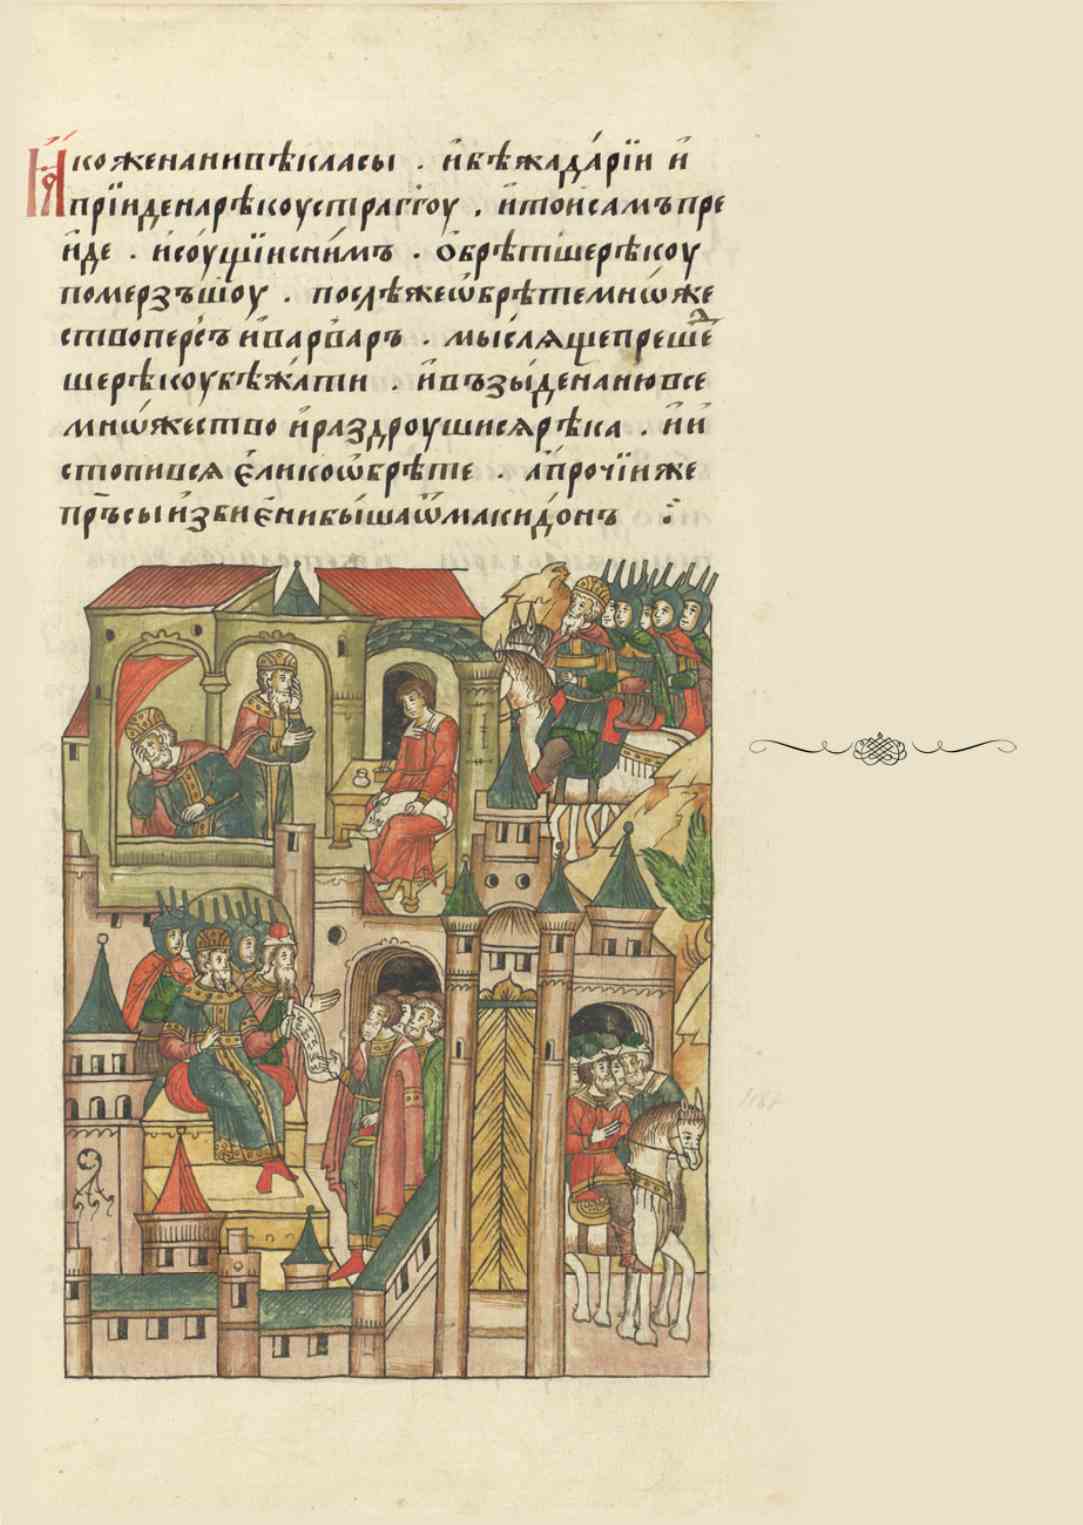 Ꙗ҆коженанивѣкласы . и҆бѣжадарїи и҆
прїиденарѣкоустраггоу . и҆тоисамъпре
и҆де . и҆соущїиснимъ . ѻ҆брѣтшерѣкоу
померзъшоу . послѣжеѡ҆брѣтемнѡже
ствоперсъ и҆варваръ . мыслѧщепрешеⷣ
шерѣкоубѣжати . и҆възыиденанювсе
мнѡжество и҆раздроушисѧрѣка . и҆и҆
стописѧ є҆ликоѡ҆брѣте . а҆прочїиже
пръсыи҆збиєнибышаѿмакидонъ